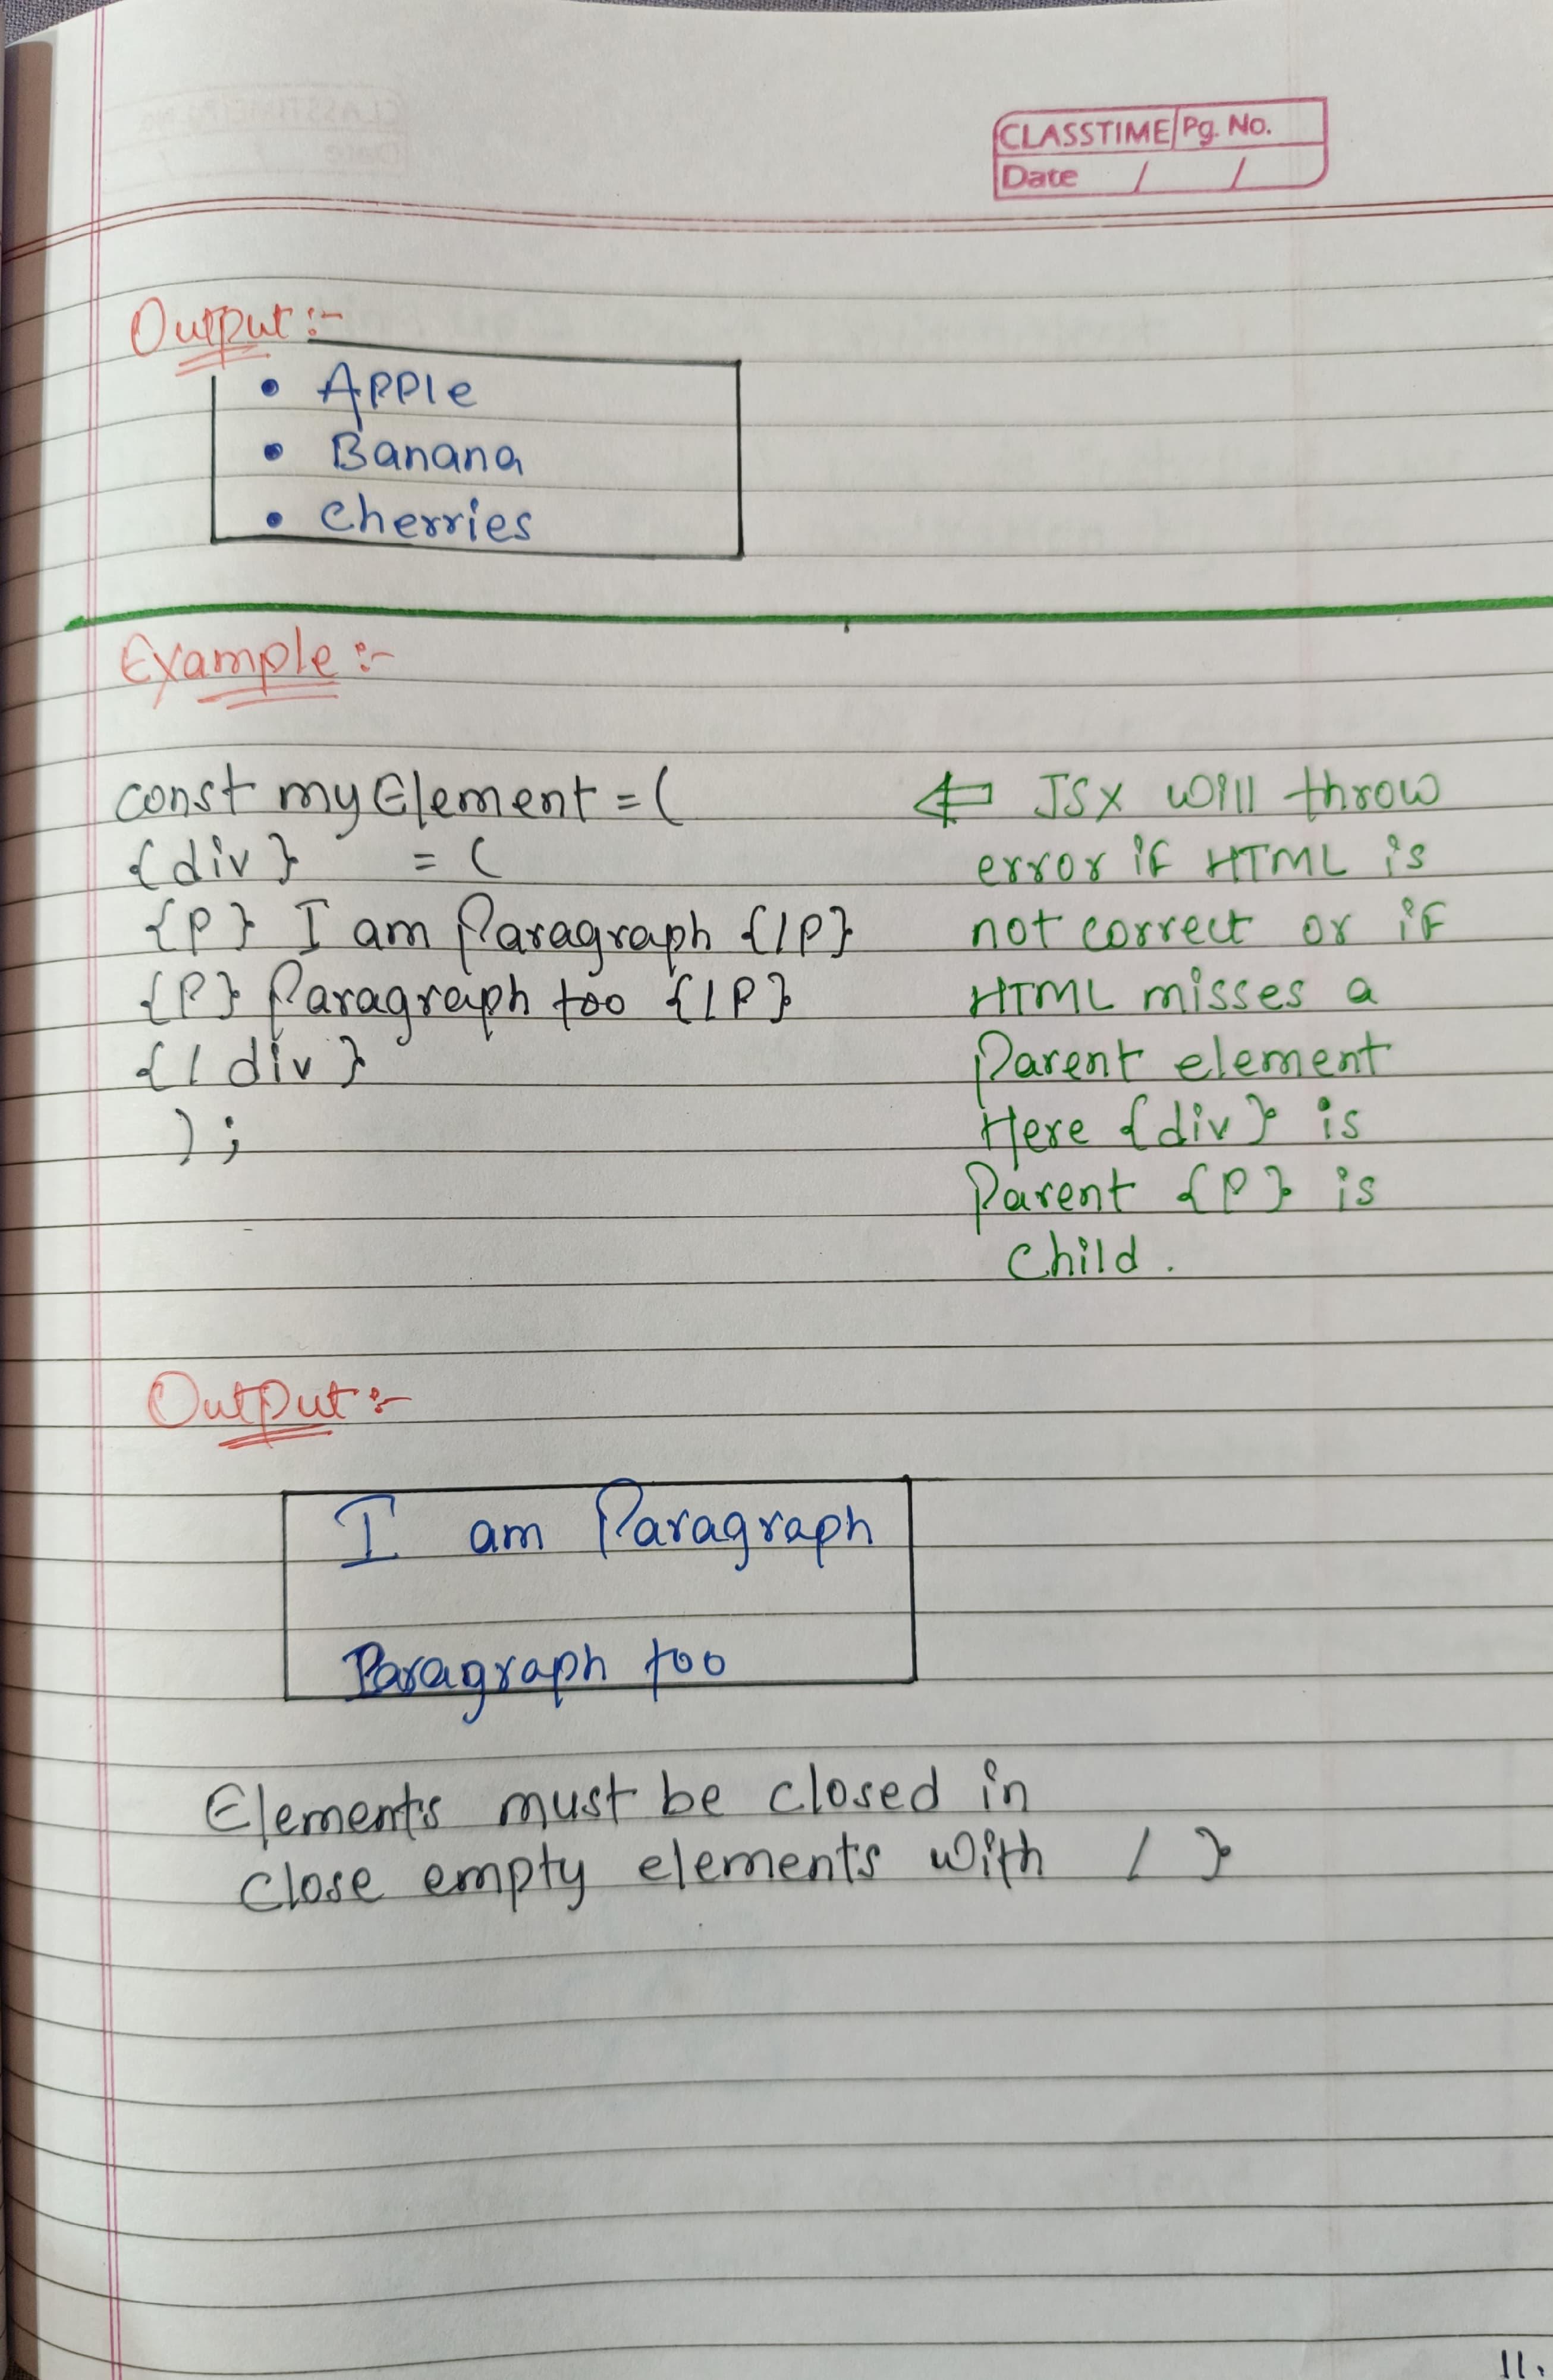 CLASSTIME Pg. No.
Date / /
Output :-
• Apple
• Banana
• Cherries
Example :-
const myElement = (
{div} = (
{P} I am Paragraph {/P}
{P} Paragraph too {/P}
{/div}
);
⇐ JSX will throw
error if HTML is
not correct or if
HTML misses a
Parent element
Here {div} is
Parent {P} is
Child.
Output :-
I am Paragraph
Paragraph too
Elements must be closed in
close empty elements with / }
11.